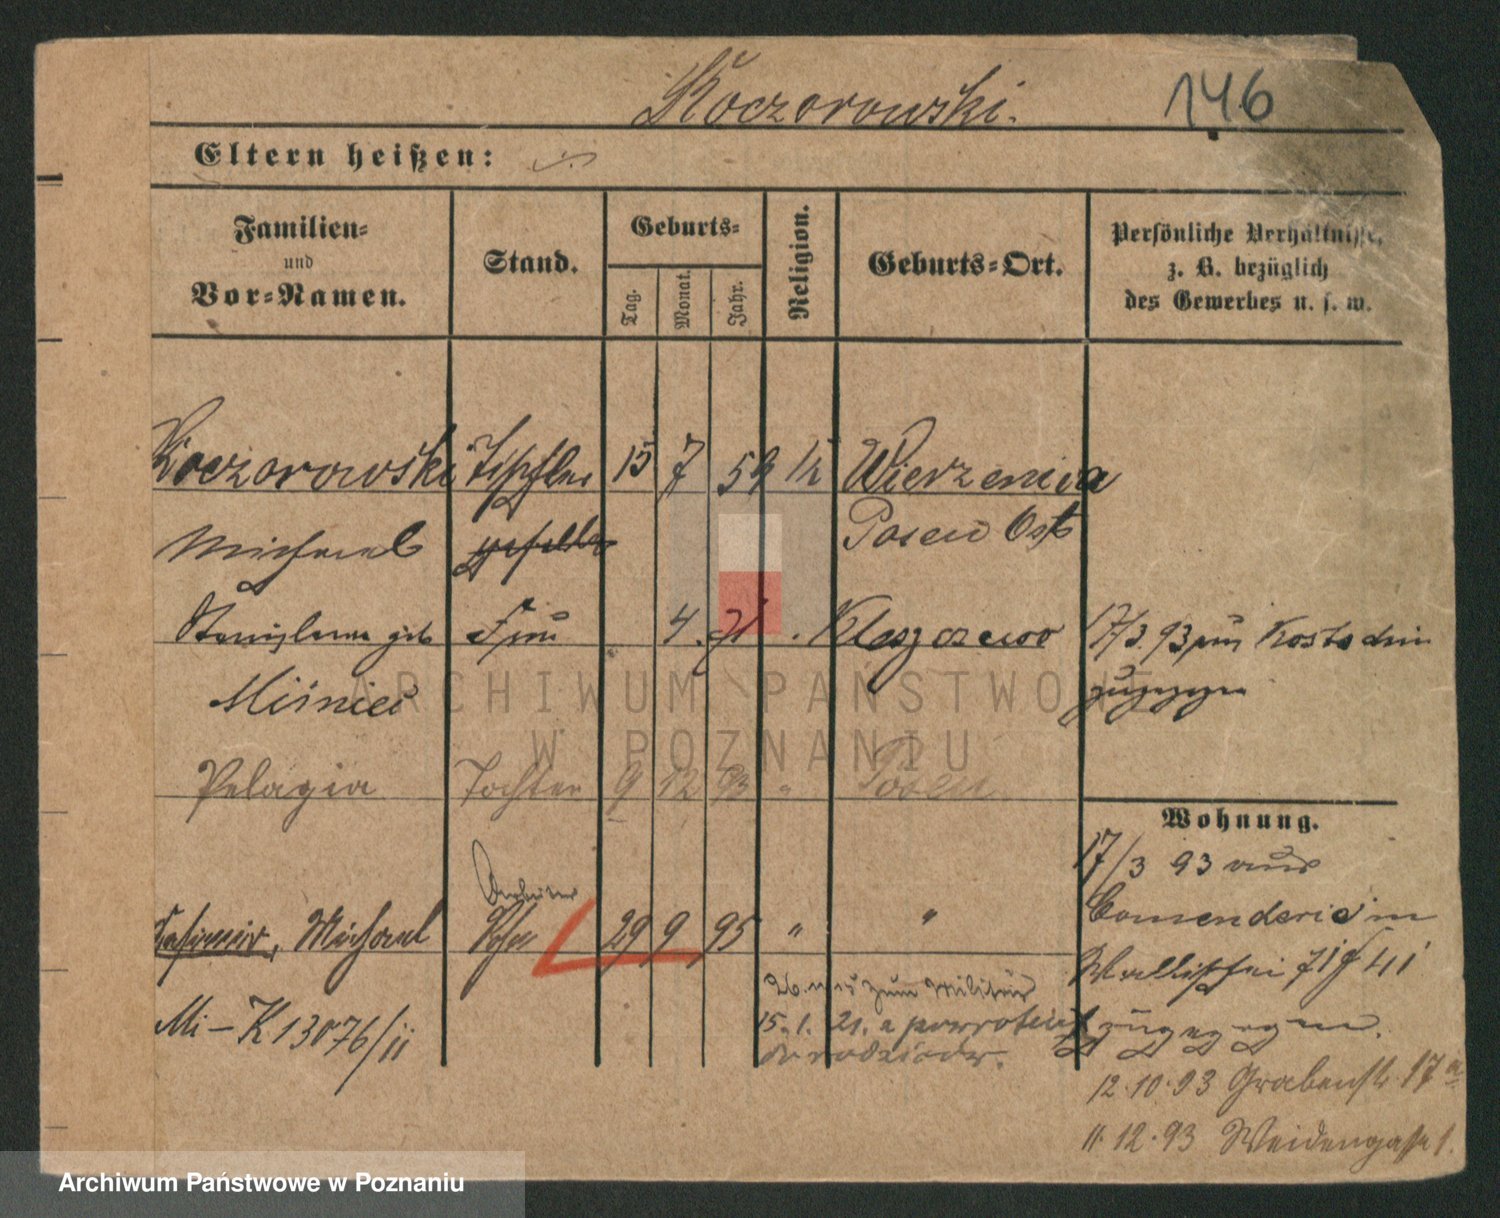 Koczorowski.
146
Eltern heißen:
Familien-
und
Vor-Namen.
Stand.
Geburts-
Tag.
Monat.
Jahr.
Religion.
Geburts-Ort.
Persönliche Verhältnisse,
z. B. bezüglich
des Gewerbes u. s. w.
Koczorowski 15 7 Wierzenica
Michael Posen Ost
Stanislawa geb Frau 4. 71 Kleszczewo 17/3. 93 zugezogen
Pelagia Tochter 9 12 93 " Posen
Wohnung.
17/3 93 aus
Comenderie im
Wallischei 71 41
Arbeiter
Kasimir, Michael Sohn 29 9 95 " "
zum Militär
zugezogen.
Mi-K13076/ii
15. 1. 21. z powrotem
do rodziców.
12.10.93 Grabenstr. 17a
11.12.93 Weidengasse 1.
ARCHIWUM PAŃSTWOWE
W POZNANIU
Archiwum Państwowe w Poznaniu